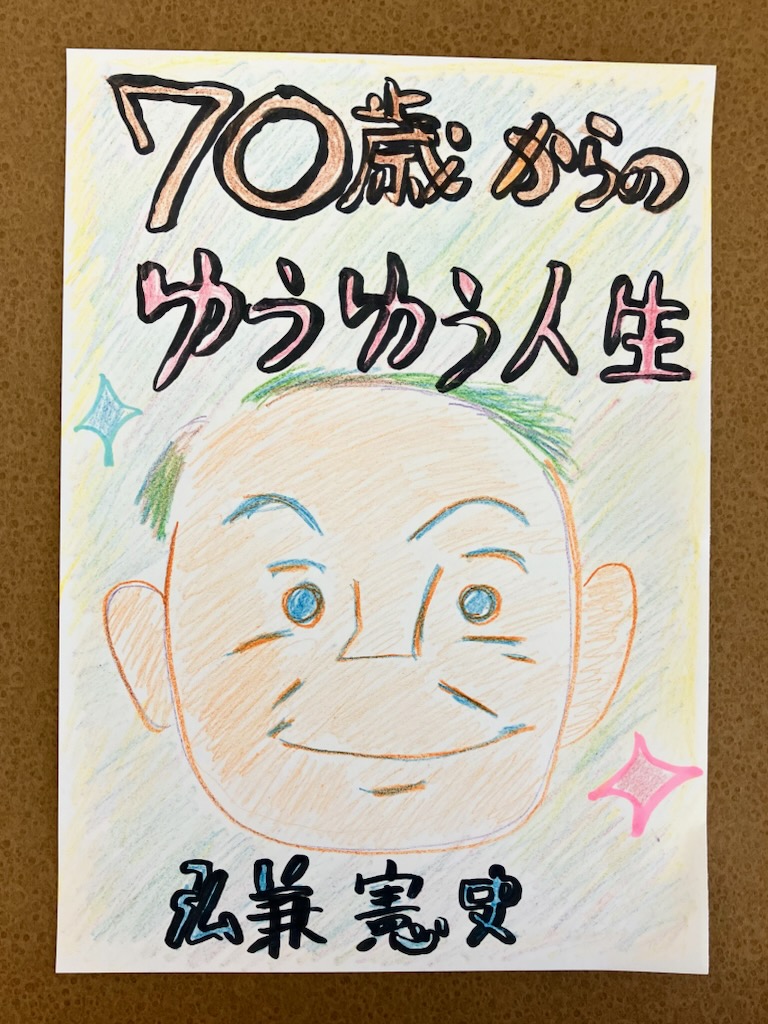 70歳からの
ゆうゆう人生
弘兼憲史